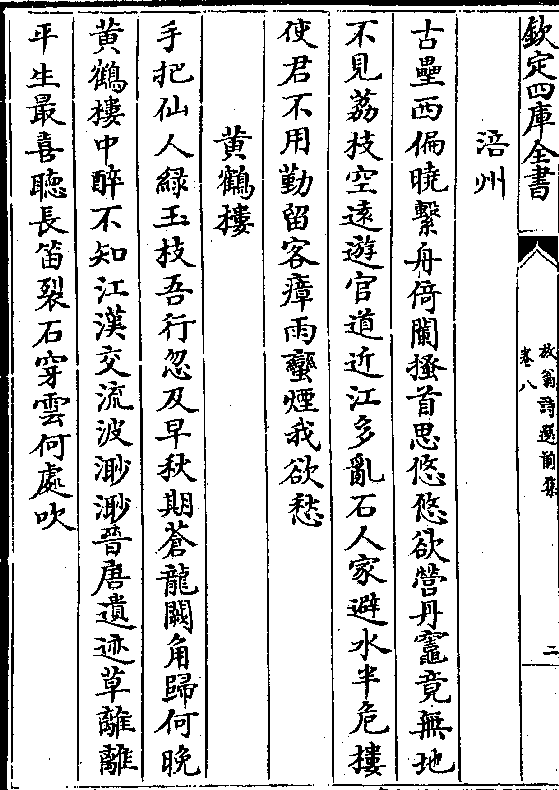 欽定四庫全書
放翁詩選前集
卷八
二
涪州
古壘西偏曉繫舟倚闌搔首思悠悠欲營丹竈竟無地
不見荔枝空遠遊官道近江多亂石人家避水半危樓
使君不用勤留客瘴雨蠻煙我欲愁
黃鶴樓
手把仙人緑玉枝吾行忽及早秋期蒼龍闕角歸何晚
黃鶴樓中醉不知江漢交流波渺渺晉唐遺迹草離離
平生最喜聽長笛裂石穿雲何處吹